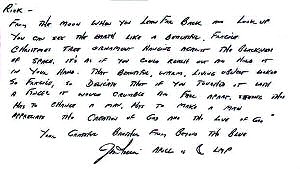 RICK -
FROM THE MOON WHEN YOU LOOK BACK AND LOOK UP
YOU CAN SEE THE EARTH LIKE A BEAUTIFUL, FRAGILE
CHRISTMAS TREE ORNAMENT HANGING AGAINST THE BLACKNESS
OF SPACE. IT'S AS IF YOU COULD REACH OUT AND HOLD IT
IN YOUR HAND. THAT BEAUTIFUL, WARM, LIVING OBJECT LOOKED
SO FRAGILE, SO DELICATE THAT IF YOU TOUCHED IT WITH
A FINGER IT WOULD CRUMBLE AND FALL APART. SEEING THIS
HAS TO CHANGE A MAN, HAS TO MAKE A MAN
APPRECIATE THE CREATION OF GOD AND THE LOVE OF GOD"
YOUR GRATEFUL BROTHER FROM BEYOND THE BLUE
Jim Irwin APOLLO 15 LMP